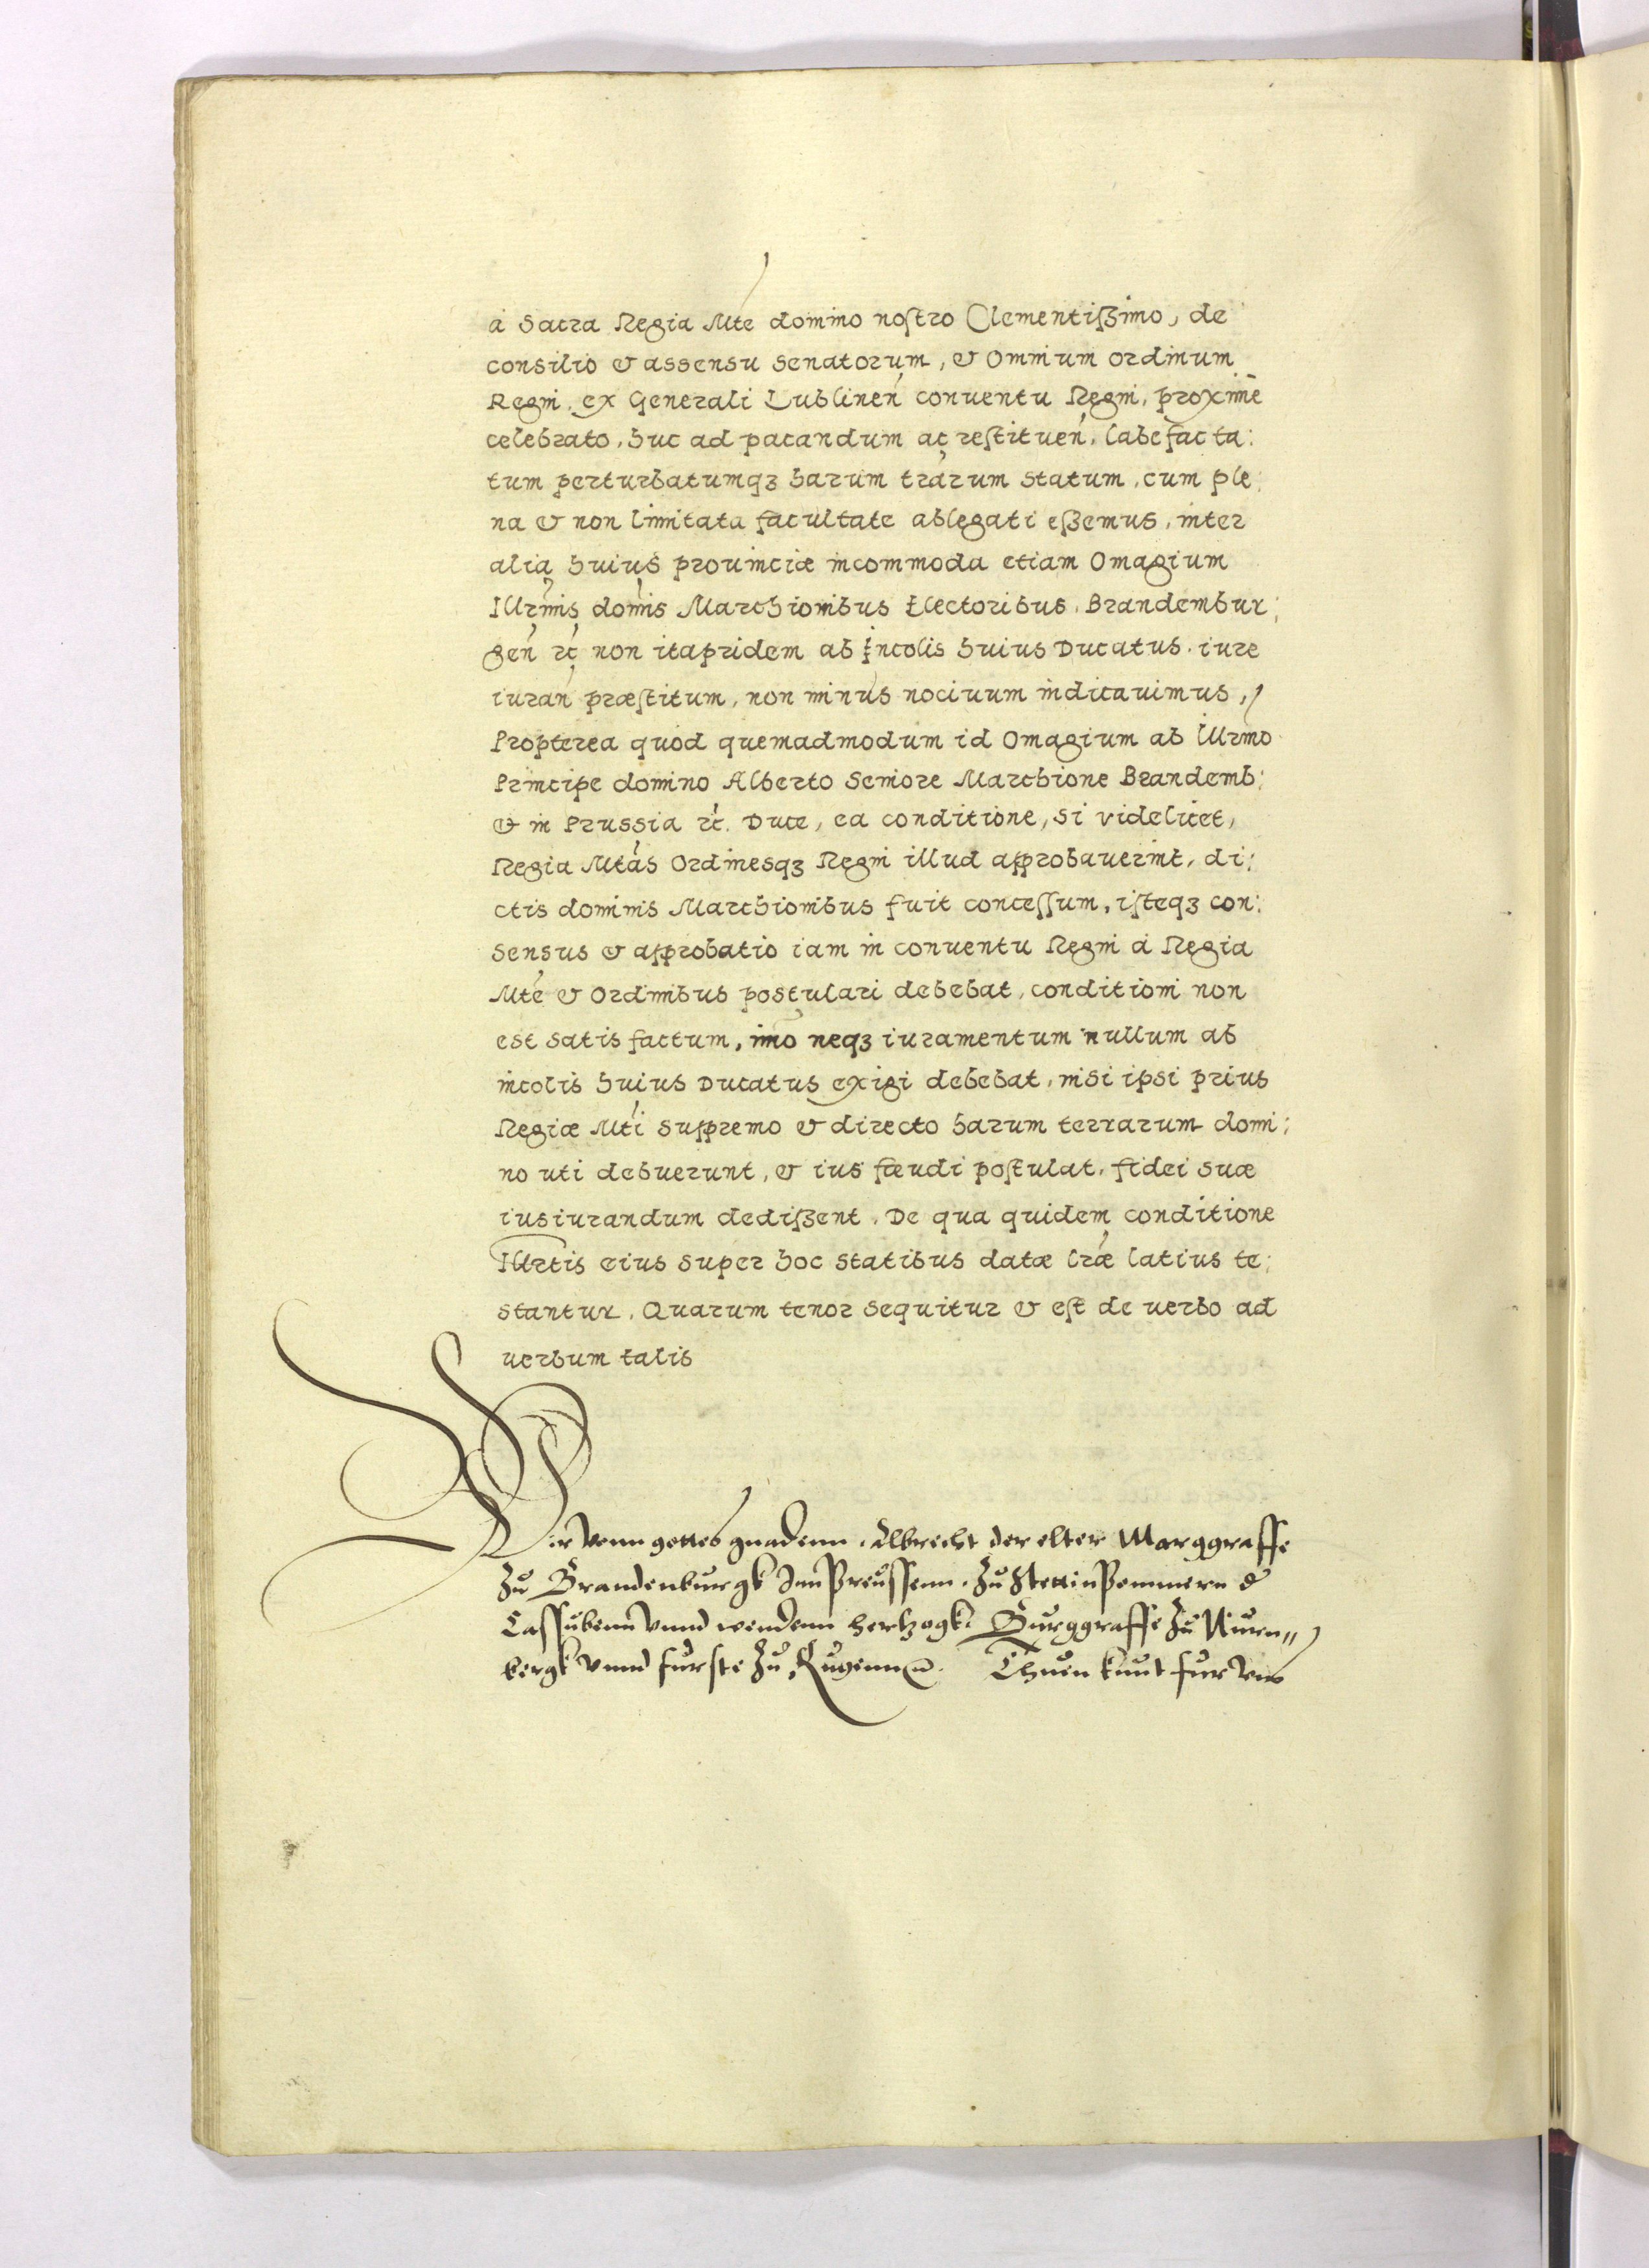 à Sacra Regia Mte domino nostro Clementißimo, de
consilio & assensu Senatorum, & Omnium Ordinum
Regni, ex Generali Lublinen conuentu Regni, proxime
celebrato, huc ad pacandum ac restituen, labefacta:
tum perturbatumqꝫ harum trarum statum, cum ple:
na & non limitata facultate ablegati eßemus, inter
alia huius prouinciæ incommoda etiam Omagium
Illrmis domis Marchionibus Electoribus Brandembur:
gen rc non itapridem ab Incolis huius Ducatus iure
iuran præstitum, non minus nociuum indicauimus,
Propterea quod quemadmodum id Omagium ab Illrmo
Principe domino Alberto Seniore Marchione Brandemb:
& in Prussia rc. Duce, ea conditione, si videlicet,
Regia Mtas Ordinesqꝫ Regni illud approbauerint, di:
ctis dominis Marchionibus fuit concessum, isteqꝫ con:
sensus & approbatio iam in conuentu Regni à Regia
Mte & Ordinibus postulari debebat, conditioni non
est satis factum, imo neqꝫ iuramentum nullum ab
incolis huius Ducatus exigi debebat, nisi ipsi prius
Regiæ Mti supremo & directo harum terrarum domi:
no uti debuerunt, & ius fæudi postulat, fidei suæ
iusiurandum dedißent. De qua quidem conditione
Illrtis eius super hoc statibus datæ lræ latius te:
stantur. Quarum tenor sequitur & est de uerbo ad
uerbum talis
Wir vonn gottes gnadenn, Albrecht der elter Marggraffe
Zu Brandenburgk Inn Preussenn, Zu Stettin Pommern der
Cassubenn vnnd wendenn hertzogk, Burggraffe Zu Nurn„
bergk vnnd furste Zu Rugenn rc. Thuen kunt fur vns